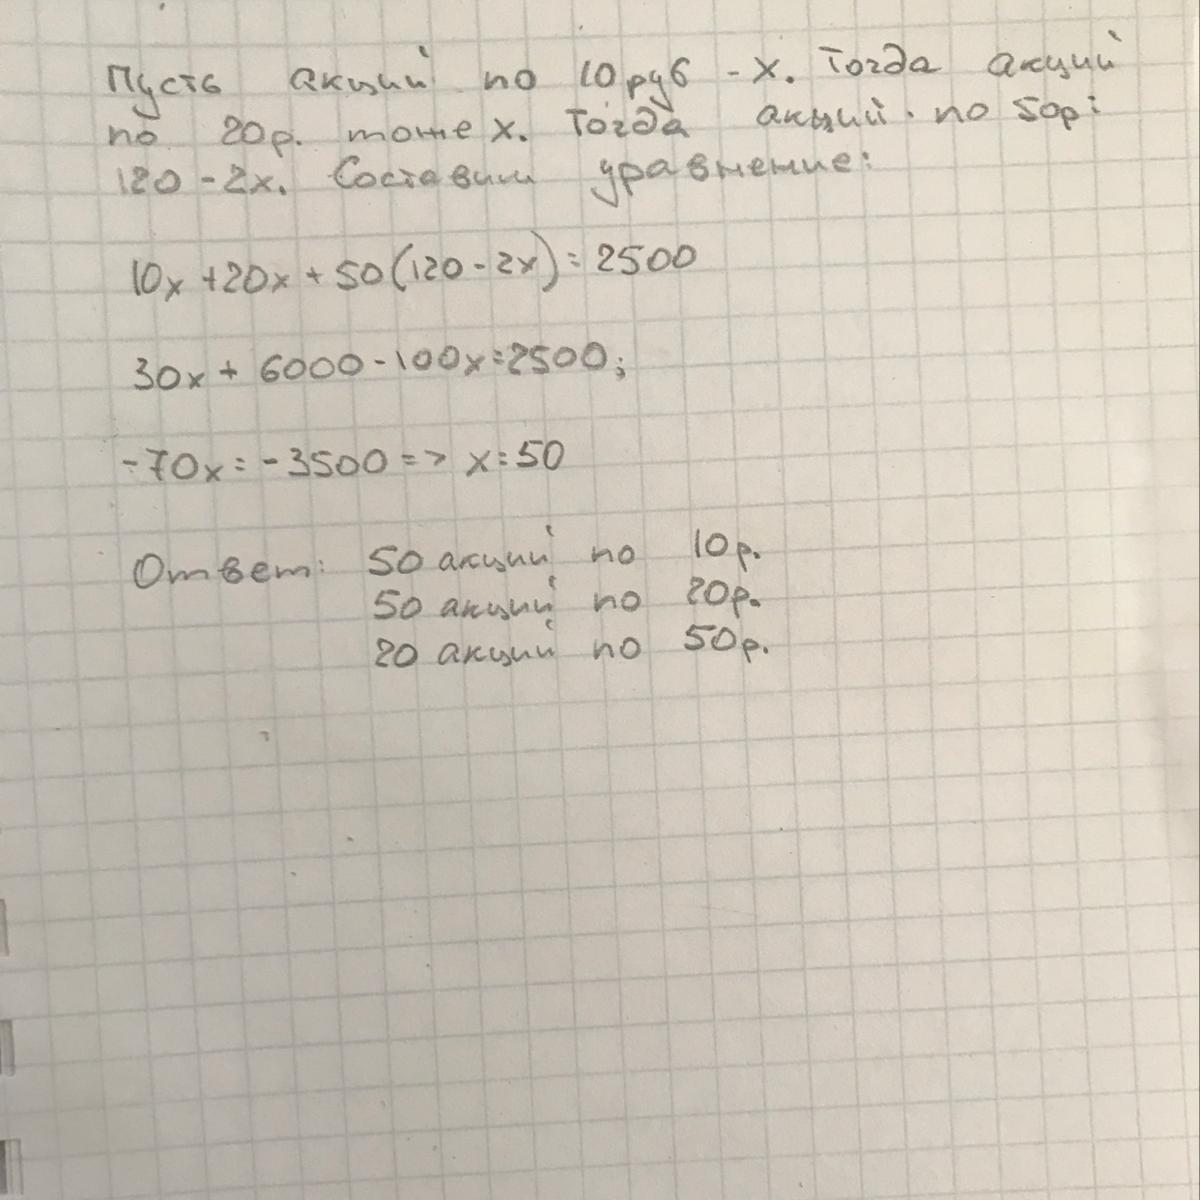 Пусть акций по 10 руб - x. Тогда акций
по 20р. тоже x. Тогда акций по 50р:
120 - 2x. Составим уравнение:
10x + 20x + 50(120 - 2x) = 2500
30x + 6000 - 100x = 2500;
-70x = -3500 => x = 50
Ответ: 50 акций по 10р.
50 акций по 20р.
20 акций по 50р.